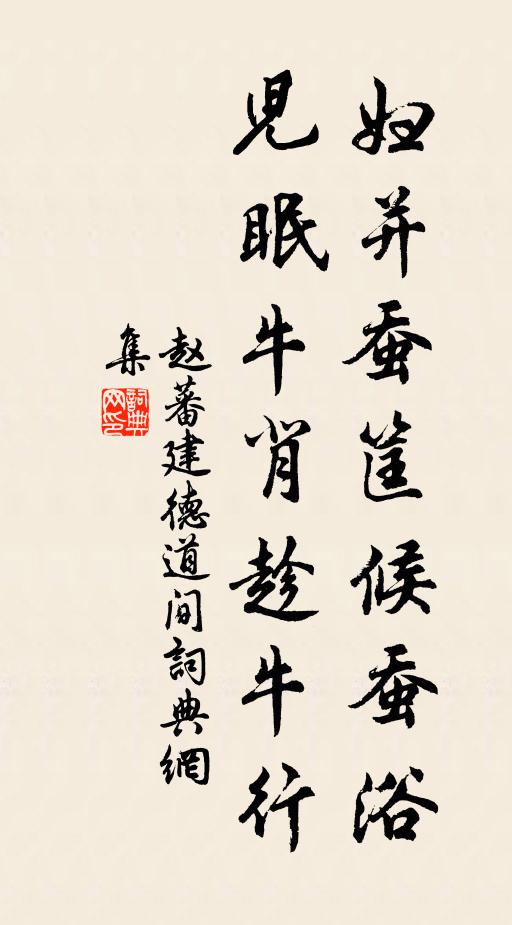 妇并蚕筐候蚕浴
児眠牛背趁牛行
赵蕃建德道间詞典網
集
詞典网印